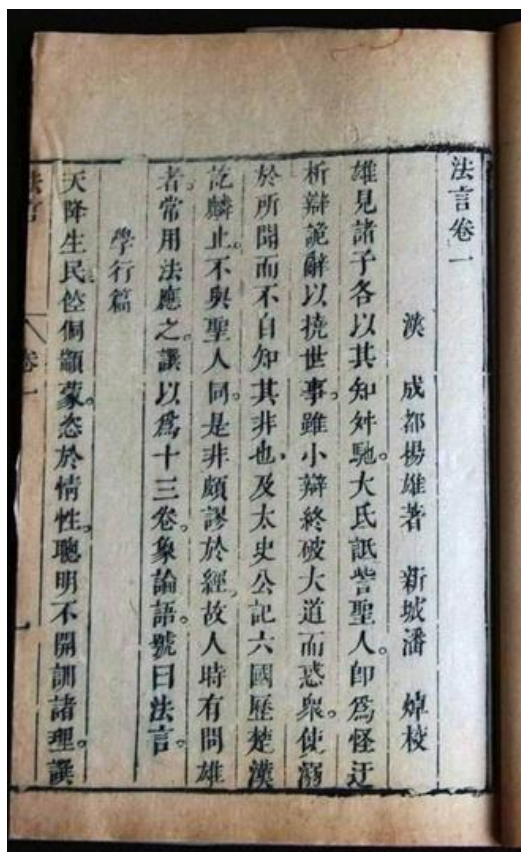 法言卷一
漢　成都揚雄著　新城潘　焯校
雄見諸子各以其知舛馳。大氐詆訾聖人。卽爲怪迂
析辯詭辭以撓世事。雖小辯終破大道而惑衆。使溺
於所聞而不自知其非也。及太史公記六國歷楚漢
訖麟止。不與聖人同。是非頗謬於經。故人時有問雄
者。常用法應之。譔以爲十三卷。象論語。號曰法言。
學行篇
天降生民倥侗顓蒙。恣於情性。聰明不開訓諸理。譔
法言　卷一　一